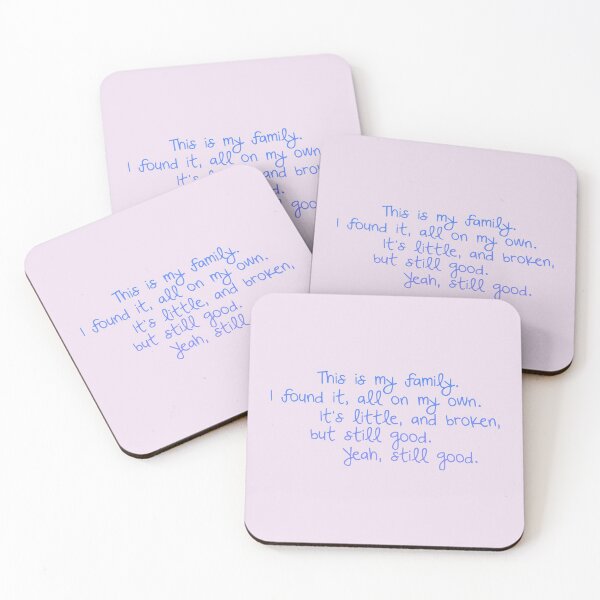 This is my family.
I found it, all on my own
it's and
This is my family.
I found it, all on my own.
It's little, and broken,
but still good.
Yeah, still good.
This is my family.
I found it, all on my own.
it's little, and broken,
but still good.
Yeah, still
This is my family.
I found it, all on my own.
It's little, and broken,
but still good.
Yeah, still good.